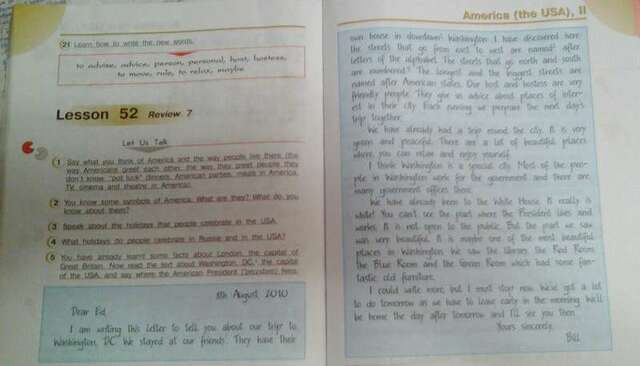 21 Learn how to write the new words.
to advise, advice, person, personal, host, hostess,
to move, rule, to relax, maybe
Lesson 52 Review 7
Let Us Talk
1 Say what you think of America and the way people live there (the
way Americans greet each other, the way they greet people they
don't know, "pot luck" dinners, American parties, meals in America,
TV, cinema and theatre in America).
2 You know some symbols of America. What are they? What do you
know about them?
3 Speak about the holidays that people celebrate in the USA.
4 What holidays do people celebrate in Russia and in the USA?
5 You have already learnt some facts about London, the capital of
Great Britain. Now read the text about Washington, DC,¹ the capital
of the USA, and say where the American President lives.
8th August, 2010
Dear Ed,
I am writing this letter to tell you about our trip to
Washington, DC. We stayed at our friends'. They have their
America (the USA), II
own house in downtown² Washington. I have discovered here
the streets that go from east to west are named³ after
letters of the alphabet. The streets that go north and south
are numbered. The longest and the biggest streets are
named after American states. Our host and hostess are very
friendly people. They give us advice about places of inter-
est in their city. Each evening we prepare the next day's
trip together.
We have already had a trip round the city. It is very
green and peaceful. There are a lot of beautiful places
where you can relax and enjoy yourself.
I think Washington is a special city. Most of the peo-
ple in Washington work for the government and there are
many government offices there.
We have already been to the White House. It really is
white! You can't see the part where the President lives and
works. It is not open to the public. But the part we saw
was very beautiful. It is maybe one of the most beautiful
places in Washington. We saw the library, the Red Room,
the Blue Room and the Green Room which had some fan-
tastic old furniture.
I could write more, but I must stop now. We've got a lot
to do tomorrow as we have to leave early in the morning. We'll
be home the day after tomorrow and I'll see you then.
Yours sincerely,
Bill